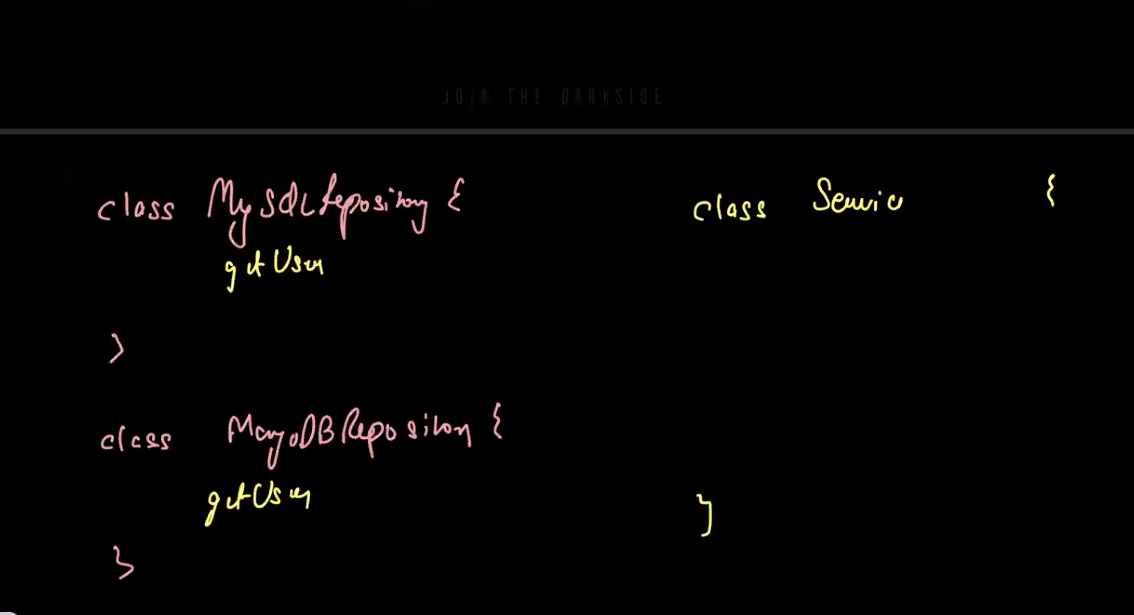 JOIN THE DARKSIDE
class MySQLRepository {
getUser
}
class MongoDBRepository {
getUser
}
class Service {
}